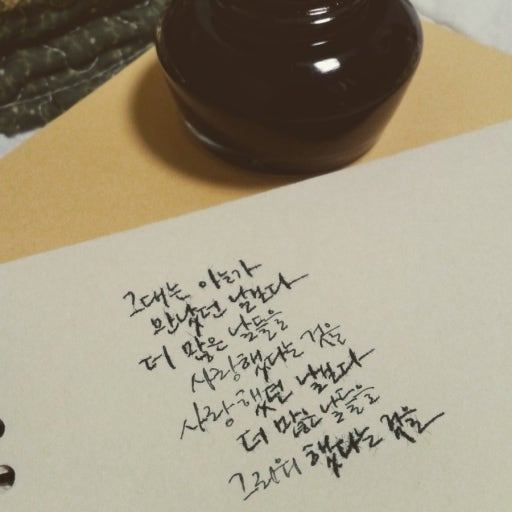 그대는 아는가
만났던 날보다
더 많은 날들을
사랑했다는 것을
사랑했던 날보다
더 많은 날들을
그리워했다는 것을